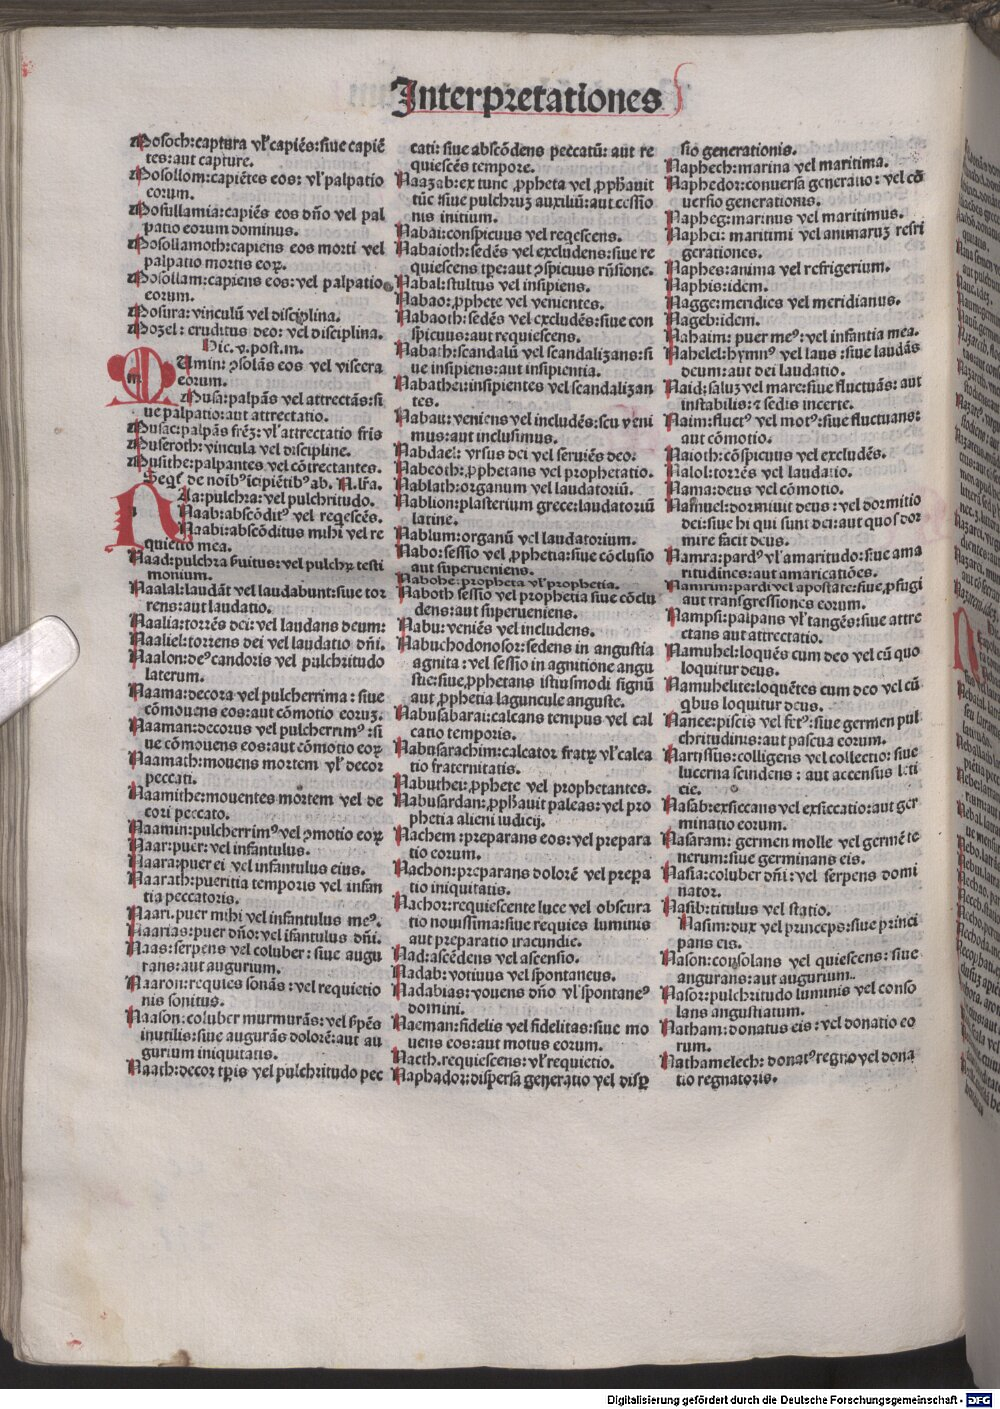 Interpretationes
Mosoch:captura vl̛ capiẽs:siue capiẽ
tes:aut capture.
Mosollom:capiẽtes eos: vl̛ palpatio
eorum.
Mosullamia:capiẽs eos dño vel pal
patio eorum dominus.
Mosollamoth:capiens eos morti vel
palpatio mortis eoꝝ.
Mosollam:capiens eos:vel palpatio
eorum.
Mosura:vinculũ vel disciplina.
Mozel: eruditus deo: vel disciplina.
Hic.v.post.m.
Mumin: ꝯsolãs eos vel viscera
eorum.
Musa:palpãs vel attrectãs:si
ue palpatio:aut attrectatio.
Musac:palpãs frẽz:vl̛ attrectatio fris
Museroth:vincula vel discipline.
Musithe:palpantes vel cõtrectantes.
Seqt̛ de noib᷒ icipiẽtib᷒ ab. N.lr̃a.
Naa:pulchra:vel pulchritudo.
Naab:abscõdit᷒ vel reqescẽs.
Naabi:abscõditus mihi vel re
quietio mea.
Naad:pulchra fruitus:vel pulchꝝ testi
monium.
Naalal:laudãt vel laudabunt:siue tor
rens:aut laudatio.
Naalia:torrẽs dei: vel laudans deum:
Naaliel:torrens dei vel laudatio dñi.
Naalon:de᷒ candoris vel pulchritudo
laterum.
Naama:decora vel pulcherrima : siue
cõmouens eos:aut cõmotio eoruz.
Naaman:decorus vel pulcherrim᷒ :si
ue cõmouens eos:aut cõmotio eoꝝ
Naamath:mouens mortem vl̛ decor
peccati.
Naamithe:mouentes mortem vel de
cori peccato.
Naamin:pulcherrim᷒ vel ꝯmotio eoꝝ
Naar:puer: vel infantulus.
Naara:puer ei vel infantulus eius.
Naarath:pueritia temporis vel infan
tia peccatoris.
Naari.puer mihi vel infantulus me᷒.
Naarias:puer dño: vel ifantulus dñi.
Naas:serpens vel coluber: siue augu
rans:aut augurium.
Naaron:requies sonãs : vel requietio
nis sonitus.
Naason:coluber murmurãs: vel sp̃es
inutilis:siue augurãs dolorẽ:aut au
gurium iniquitatis.
Naath:decor tp̃is vel pulchritudo pec
cati: siue abscõdens peccatũ: aut re
quiescẽs tempore.
Naazab:ex tunc ꝓpheta vel ꝓphauit
tũc :siue pulchruz auxiliũ:aut cessio
nis initium.
Nabai:conspicuus vel reqescens.
Nabaioth:sedẽs vel excludens:siue re
quiescens tpe:aut ꝯspicuus rñsione.
Nabal:stultus vel insipiens.
Nabao:ꝓphete vel venientes.
Nabaoth:sedẽs vel excludẽs:siue con
spicuus:aut requiescens.
Nabath:scandalũ vel scandalizans:si
ue insipiens:aut insipientia.
Nabathei:insipientes vel scandalizan
tes.
Nabau: veniens vel includẽs:seu veni
mus:aut inclusimus.
Nabdael: vrsus dei vel seruiẽs deo.
Nabeoth:ꝓphetans vel prophetatio.
Nablath:organum vel laudatoriũ.
Nablion:plasterium grece:laudatoriũ
latine.
Nablum:organũ vel laudatorium.
Nabo:sessio vel ꝓphetia:siue cõclusio
aut superueniens.
Nabohe:propheta vl̛ prophetia.
Naboth sessio vel prophetia siue cõclu
dens:aut superueniens.
Nabu: veniẽs vel includens.
Nabuchodonosor:sedens in angustia
agnita : vel sessio in agnitione angu
stie:siue,ꝓphetans istiusmodi signũ
aut ꝓphetia laguncule anguste.
Nabusabarai:calcans tempus vel cal
catio temporis.
Nabusarachim:calcator fratꝝ vl̛ calca
tio fraternitatis.
Nabuthei:ꝓphete vel prophetantes.
Nabusardan:ꝓphauit paleas: vel pro
phetia alieni iudicij.
Nachem :preparans eos: vel prepara
tio eorum.
Nachon:preparans dolorẽ vel prepa
tio iniquitatis.
Nachor:requiescente luce vel obscura
tio nouissima:siue requies luminis
aut preparatio iracundie.
Nad:ascẽdens vel ascensio.
Nadab: votiuus vel spontaneus.
Nadabias: vouens dño vl̛ spontane᷒
domini.
Naeman:fidelis vel fidelitas:siue mo
uens eos:aut motus eorum.
Naeth.requiescens:vl̛ requietio.
Naphador:dispersa generatio vel disꝑ
sio generationis.
Naphech:marina vel maritima.
Naphedor:conuersa generatio : vel cõ
uersio generationis.
Napheg:marinus vel maritimus.
Naphei: maritimi vel animaruz refri
gerationes.
Naphes:anima vel refrigerium.
Naphis:idem.
Nagge:meridies vel meridianus.
Nageb:idem.
Nahaim: puer me᷒: vel infantia mea.
Nahelel:hymn᷒ vel laus :siue laudãs
deum:aut dei laudatio.
Naid:saluz vel mare:siue fluctuãs: aut
instabilis:⁊ sedis incerte.
Naim:fluct᷒ vel mot᷒:siue fluctuans:
aut cõmotio.
Naioth:cõspicuus vel excludẽs.
Nalol:torrẽs vel laudatio.
Nama:deus vel cõmotio.
Namuel:dormiuit deus : vel dormitio
dei:siue hi qui sunt dei:aut quos dor
mire facit deus.
Namra:pard᷒ vl̛ amaritudo:siue ama
ritudines:aut amaricatiões.
Namrim:pardi vel apostate:siue,ꝓfugi
aut transgressiones eorum.
Nampsi:palpans vl̛ tangẽs:siue attre
ctans aut attrectatio.
Namuhel:loquẽs cum deo vel cũ quo
loquitur deus.
Namuhelite:loquẽtes cum deo vel cũ
qbus loquitur deus.
Nance:piscis vel fet᷒:siue germen pul
chritudinis:aut pascua eorum.
Nartissus:colligens vel collectio: siue
lucerna scindens : aut accensus leti
cie.
Nasab:exsiccans vel exsiccatio:aut ger
minatio eorum.
Nasaram: germen molle vel germẽ te
nerum:siue germinans eis.
Nasia:coluber dñi : vel serpens domi
nator.
Nasib:titulus vel statio.
Nasim:dux vel princeps:siue princi
pans eis.
Nason:consolans vel quiescens: siue
angurans:aut augurium..
Nasor:pulchritudo luminis vel conso
lans angustiatum.
Natham:donatus eis: vel donatio eo
rum.
Nathamelech: donat᷒ regno vel dona
tio regnatoris.
Digitalisierung gefördert durch die Deutsche Forschungsgemeinschaft - DFG